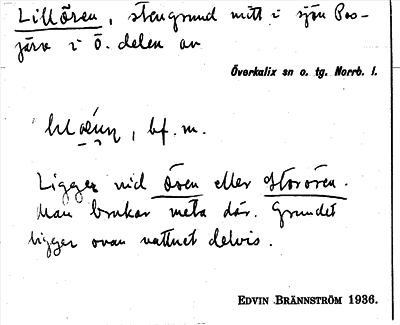 Lillören, stengrund mitt i sjön Pos-
järv i ö. delen av
Överkalix sn o. tg. Norrb. l.
bf. m.
Ligger vid Ören eller Storören.
Man brukar meta där. Grundet
ligger ovan vattnet delvis.
EDVIN BRÄNNSTRÖM 1936.